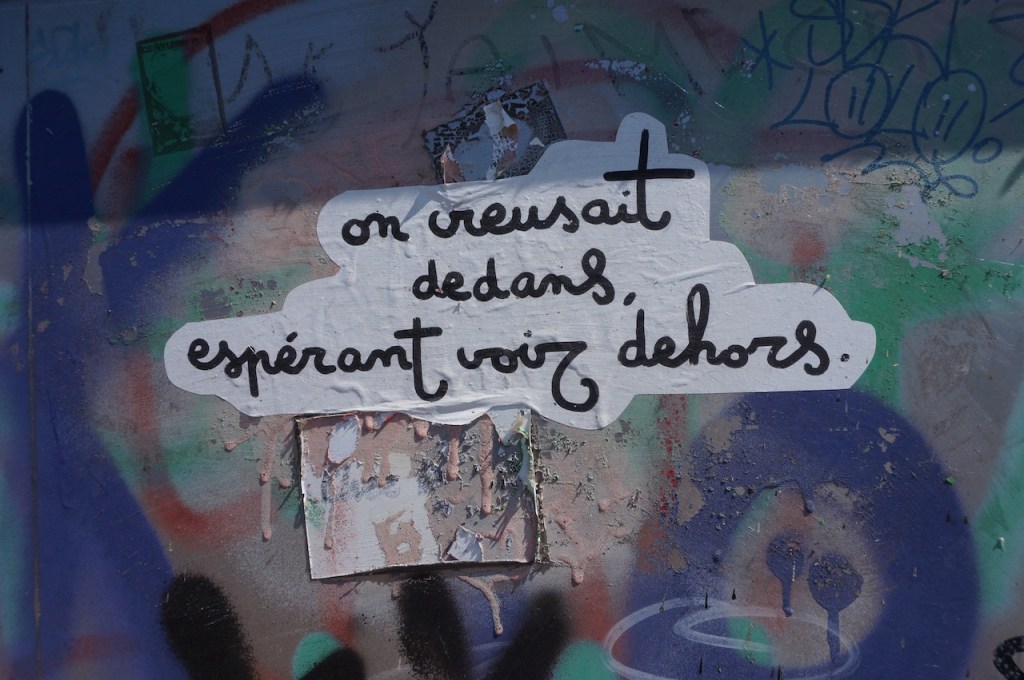 LOLO
on creusait
dedans,
espérant voir dehors.